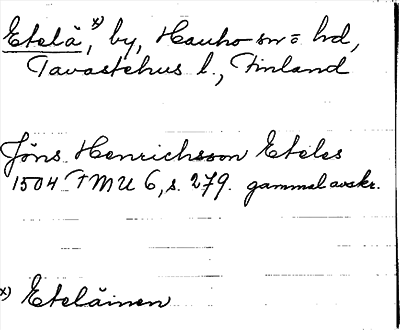 Etelä, x) by, Hauho sn = hd,
Tavastehus l., Finland
Jöns Henrichsson Eteles
1504 FMU 6, s. 279. gammal avskr.
x) Eteläinen